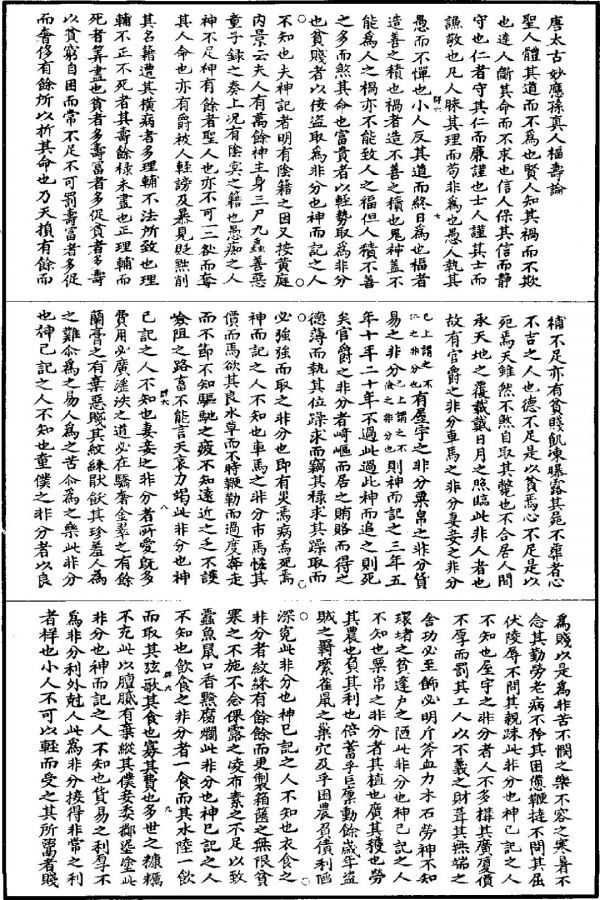 唐太古妙應孫真人福壽論
聖人體其道而不為也賢人知其禍而不欺
也達人斷其命而不求也信人保其信而靜
守也仁者守其仁而廉謹也士人謹其士而
謙敬也凡人昧其理而苟非為也愚人執其
愚而不憚也小人反其道而終日為也福者
造善之積也禍者造不善之積也鬼神蓋不
能為人之禍亦不能致人之福但人積不善
之多而煞其命也富貴者以輕勢取為非分
也貧賤者以佞盜取為非分也神而記之人
不知也夫神記者明有陰籍之因又按黃庭
內景云夫人有萬餘神主身三尸九蟲善惡
童子錄之奏上況有陰冥之籍也愚癡之人
神不足神有餘者聖人也亦不可一欲而奪
其人命也亦有爵被人輕謗及暴見貶黜削
其名籍遭其橫病者多理輔不法所致也理
輔不正不死者其壽餘祿未盡也正理輔而
死者筭盡也貧者多壽富者多促貧者多壽
以貧窮自困而常不足不可罰壽富者多促
而奢侈有餘所以折其命也乃天損有餘而
補不足亦有貧賤飢凍曝露其屍不葬者心
不吉之人也德不足是以貧焉心不足是以
死焉天雖然不煞自取其斃也不合居人間
承天地之覆載戴日月之照臨此非人者也
故有官爵之非分車馬之非分妻妾之非分
已上謂之不仁之非分也有屋宇之非分粟帛之非分貨
易之非分已上謂之不儉之非分也則神而記之三年五
年十年二十年不過此過此神而追之則死
矣官爵之非分者崎嶇而居之賄賂而得之
德薄而執其位躁求而竊其祿求其躁取而
必強強而取之非分也即有災焉病焉死焉
神而記之人不知也車馬之非分市馬恠其
價而焉欲其良水草而不時鞭勒而過度奔走
而不節不知驅馳之疲不知遠近之乏不護
險阻之路畜不能言天哀力竭此非分也神
已記之人不知也妻妾之非分者所愛既多
費用必廣淫泆之道必在驕奢金翠之有餘
蘭膏之有棄惡賤其紋綵厭飫其珍羞人為
之難尒為之易人為之苦尒為之樂此非分
也神已記之人不知也童僕之非分者以良
為賤以是為非苦不憫之樂不容之寒暑不
念其勤勞老病不矜其困憊鞭撻不問其屈
伏陵辱不問其親踈此非分也神已記之人
不知也屋宇之非分者人不多搆其廣廈價
不厚而罰其工人以不義之財葺其無端之
舍功必至飾必明斤斧血力木石勞神不知
環堵之貧蓬戶之陋此非分也神已記之人
不知也粟帛之非分者其植也廣其穫也勞
其農也負其利也倍蓄乎巨廩動餘歲年盜
賊之羈縻雀鼠之巢穴及乎困農召債利陷
深冤此非分也神已記之人不知也衣食之
非分者紋綵有餘餘而更製箱篋之無限貧
寒之不施不念倮露之凌布素之不足以致
蠹魚鼠口香黦腐爛此非分也神已記之人
不知也飲食之非分者一食而其水陸一飲
而取其弦歌其食也寡其費也多世之糠糲
不充此以膻膩有棄縱其僕妾委擲泥塗此
非分也神而記之人不知也貨易之利厚不
為非分利外剋人此為非分接得非常之利
者祥也小人不可以輕而受之其所鬻者賤